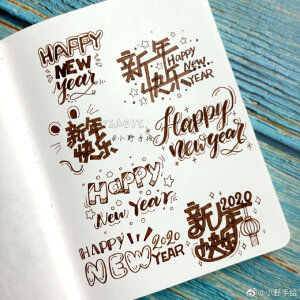 HAPPY
NEW
year
新年
快乐
Happy
New..
YEAR
新年
快乐
XIAOYE
@小野手绘
Happy
new year
HAPPY
New Year
2020
新年
快乐
HAPPY 2020
NEW YEAR
@小野手绘